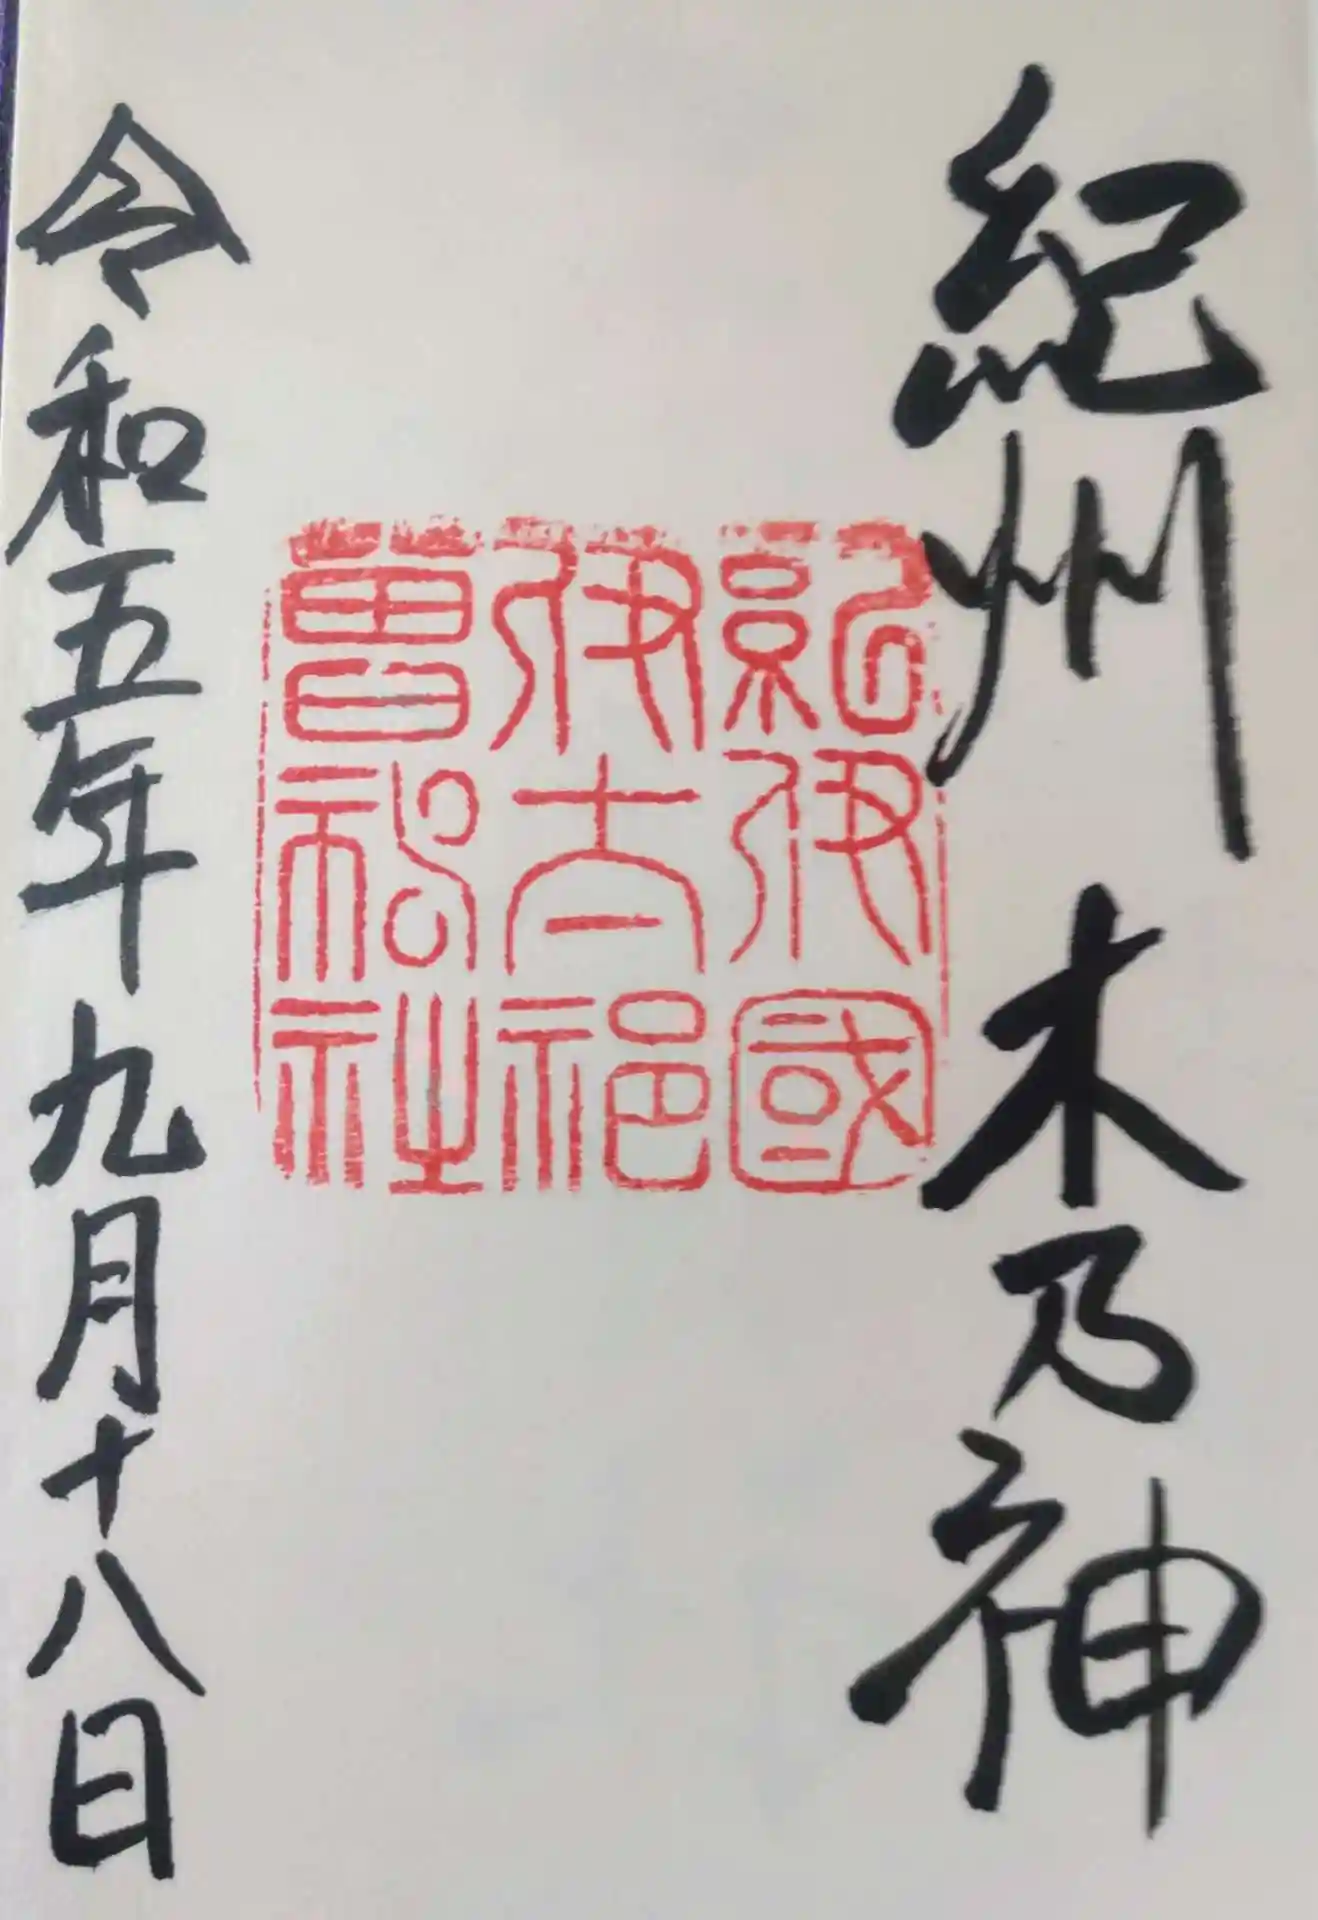 紀州 木乃神
紀伊國
伊太祁
曽神社
令和五年九月十八日